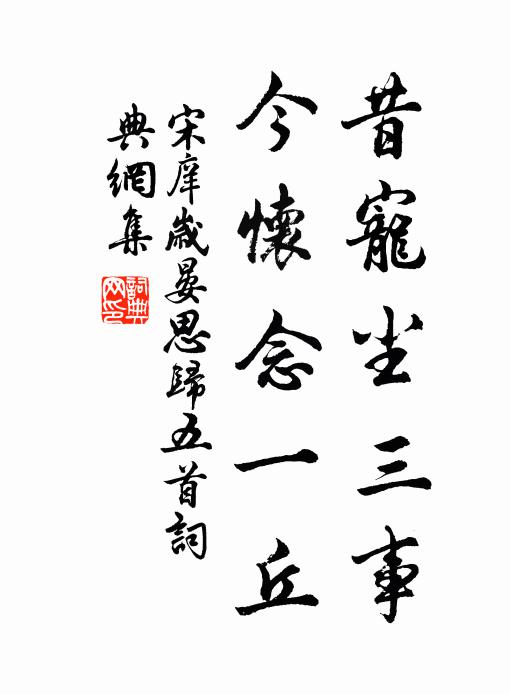 昔寵坐三事
今懷念一丘
宋庠歲晏思歸五首詞
典網集
詞典網印